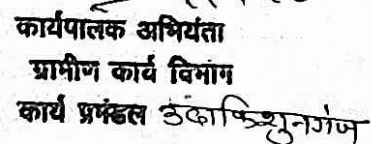 कार्यपालक अभियंता
ग्रामीण कार्य विभाग
कार्य प्रमंडल उदाकिशुनगंज